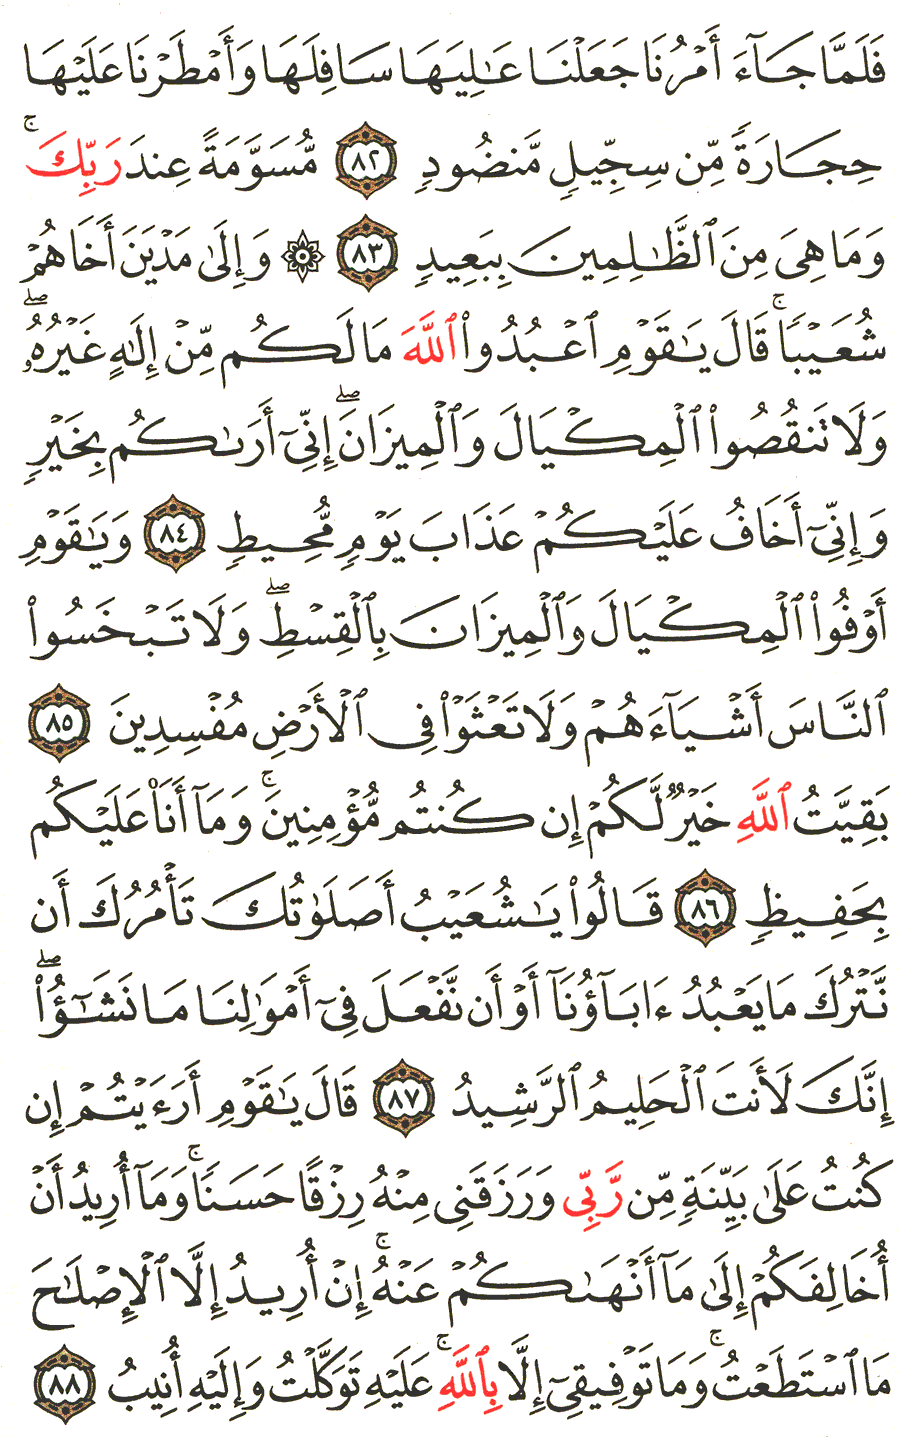 فَلَمَّا جَآءَ أَمْرُنَا جَعَلْنَا عَٰلِيَهَا سَافِلَهَا وَأَمْطَرْنَا عَلَيْهَا
حِجَارَةً مِّن سِجِّيلٍ مَّنضُودٍ ٨٢ مُّسَوَّمَةً عِندَ رَبِّكَۖ
وَمَا هِىَ مِنَ ٱلظَّٰلِمِينَ بِبَعِيدٍ ٨٣ ۞ وَإِلَىٰ مَدْيَنَ أَخَاهُمْ
شُعَيْبًاۚ قَالَ يَٰقَوْمِ ٱعْبُدُوا۟ ٱللَّهَ مَا لَكُم مِّنْ إِلَٰهٍ غَيْرُهُۥۖ
وَلَا تَنقُصُوا۟ ٱلْمِكْيَالَ وَٱلْمِيزَانَۖ إِنِّىٓ أَرَىٰكُم بِخَيْرٍ
وَإِنِّىٓ أَخَافُ عَلَيْكُمْ عَذَابَ يَوْمٍ مُّحِيطٍ ٨٤ وَيَٰقَوْمِ
أَوْفُوا۟ ٱلْمِكْيَالَ وَٱلْمِيزَانَ بِٱلْقِسْطِۖ وَلَا تَبْخَسُوا۟
ٱلنَّاسَ أَشْيَآءَهُمْ وَلَا تَعْثَوْا۟ فِى ٱلْأَرْضِ مُفْسِدِينَ ٨٥
بَقِيَّتُ ٱللَّهِ خَيْرٌ لَّكُمْ إِن كُنتُم مُّؤْمِنِينَۚ وَمَآ أَنَا۠ عَلَيْكُم
بِحَفِيظٍ ٨٦ قَالُوا۟ يَٰشُعَيْبُ أَصَلَوٰتُكَ تَأْمُرُكَ أَن
نَّتْرُكَ مَا يَعْبُدُ ءَابَآؤُنَآ أَوْ أَن نَّفْعَلَ فِىٓ أَمْوَٰلِنَا مَا نَشَٰٓؤُا۟ۖ
إِنَّكَ لَأَنتَ ٱلْحَلِيمُ ٱلرَّشِيدُ ٨٧ قَالَ يَٰقَوْمِ أَرَءَيْتُمْ إِن
كُنتُ عَلَىٰ بَيِّنَةٍ مِّن رَّبِّى وَرَزَقَنِى مِنْهُ رِزْقًا حَسَنًاۚ وَمَآ أُرِيدُ أَنْ
أُخَالِفَكُمْ إِلَىٰ مَآ أَنْهَىٰكُمْ عَنْهُۚ إِنْ أُرِيدُ إِلَّا ٱلْإِصْلَٰحَ
مَا ٱسْتَطَعْتُۚ وَمَا تَوْفِيقِىٓ إِلَّا بِٱللَّهِۚ عَلَيْهِ تَوَكَّلْتُ وَإِلَيْهِ أُنِيبُ ٨٨